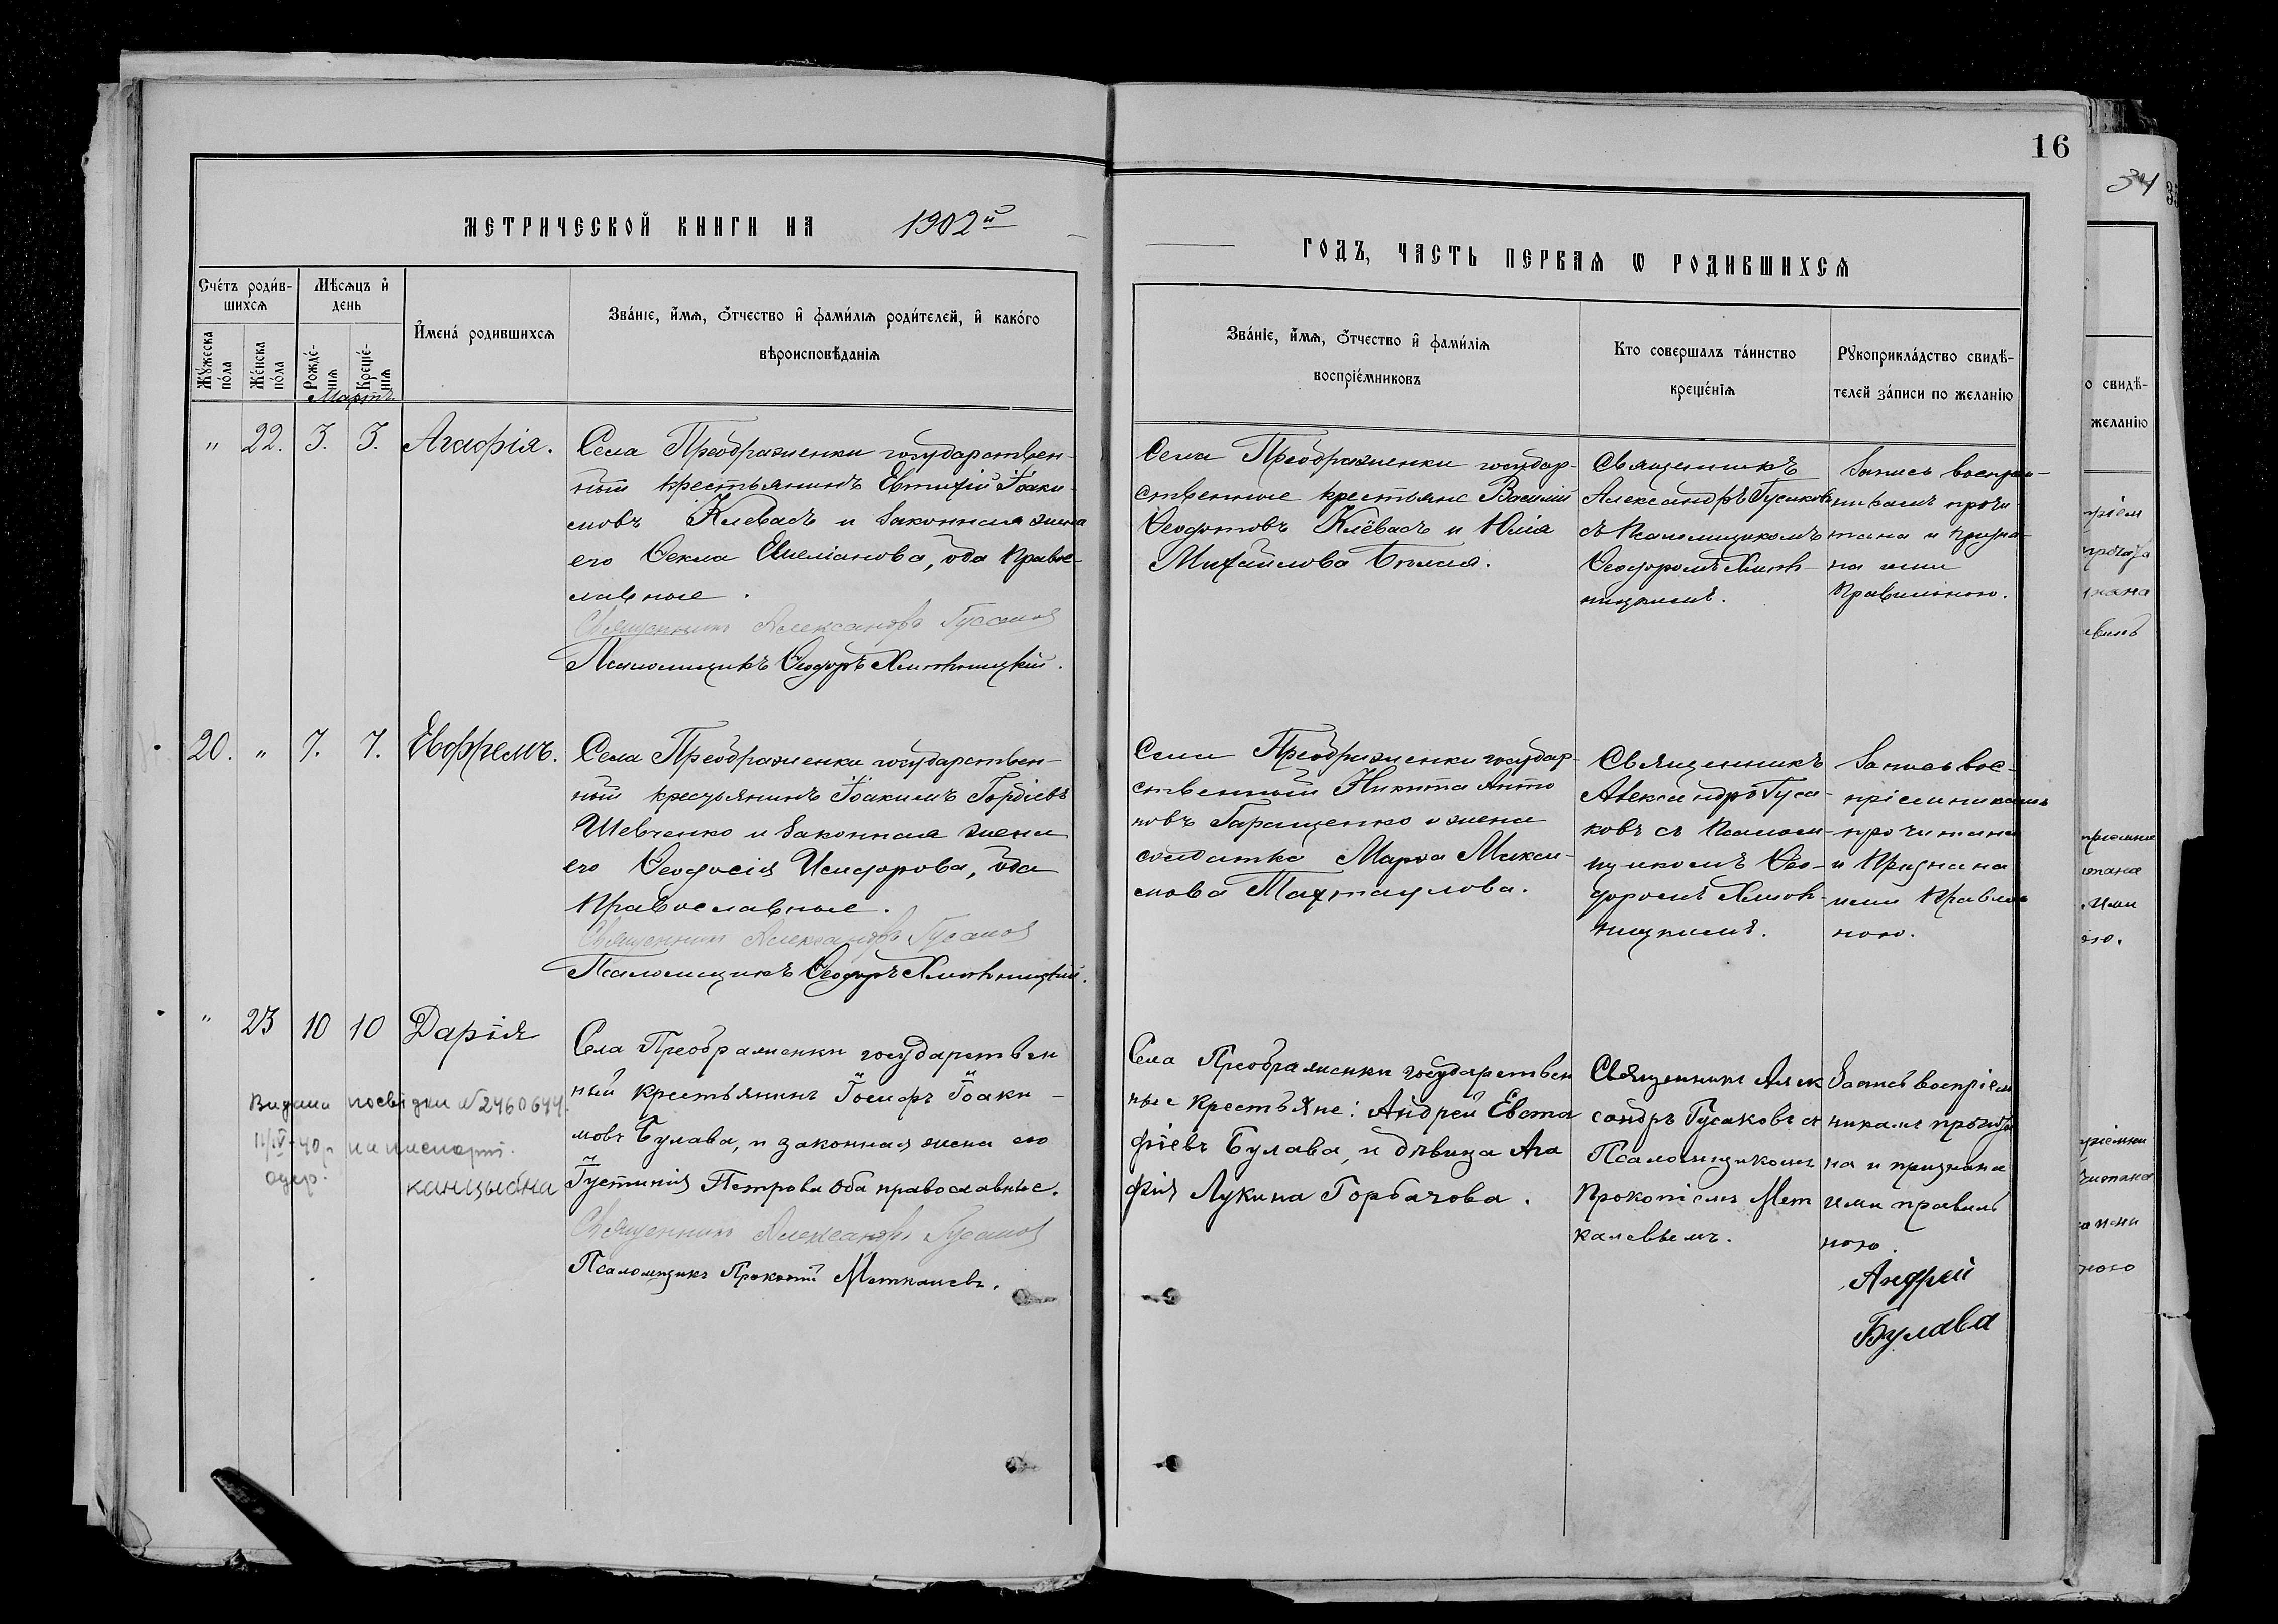 16
34
МЕТРИЧЕСКОЙ КНИГИ НА 1902й
ГОДЪ, ЧАСТЬ ПЕРВАЯ Ѡ РОДИВШИХСЯ
Счéтъ роди́в-
шихсѧ
Мѣ́сѧцъ и҆
день
И҆менà родившихсѧ
Звáнїе, и҆́мѧ, ѻ҆́тчество и҆ фами́лїѧ роди́телей, и҆ какóго
вѣроисповѣ́данїѧ
Мꙋ́жеска
пóла
Же́нска
пóла
Рождé-
нїѧ
Крещé-
нїѧ
Мартъ
Звáнїе, и҆́мѧ, ѻ҆́тчество и҆ фами́лїѧ
воспрїéмниковъ
Кто совершалъ тáинство
крещéнїѧ
Рꙋкоприклáдство свидѣ́-
телей зáписи по желáнїю
" 22. 3. 3. Агафія.
Села Преображенки государствен-
ный крестьянинъ Евтихій Іоаки-
мовъ Клевасъ и законная жена
его Ѳекла Емеліанова, оба право-
славные.
Священникъ Александръ Гусаковъ
Псаломщикъ Ѳеодоръ Хмѣльницкій.
Села Преображенки государ-
ственные крестьяне Василій
Ѳеодотовъ Клёвасъ и Юлія
Михайлова Бѣлая.
Священникъ
Александръ Гусаковъ
съ Псаломщикомъ
Ѳеодоромъ Хмѣль-
ницкимъ.
Запись воспріем-
никамъ прочи-
тана и призна-
на ими
правильною.
20. " 7. 7. Евфремъ.
Села Преображенки государствен-
ный крестьянинъ Іоакимъ Гордіевъ
Шевченко и законная жена
его Ѳеодосія Исидорова, оба
православные.
Священникъ Александръ Гусаковъ
Псаломщикъ Ѳеодоръ Хмѣльницкій.
Села Преображенки государ-
ственный Никита Анто
новъ Геращенко и жена
солдатка Марѳа Макси-
мова
Священникъ
Александръ Гуса-
ковъ съ Псалом-
щикомъ Ѳео-
доромъ Хмѣль-
ницкимъ.
Запись вос-
пріемникамъ
прочитана
и признана
ими правиль
ною.
" 23 10 10 Дарія
Села Преображенки государствен
ный крестьянинъ Іосифъ Іоаки-
мовъ Булава, и законная жена его
Іустинія Петрова оба православные.
Священникъ Александръ Гусаковъ
Псаломщикъ Прокопій Меткалевъ.
Видана посвідка №2460644.
11/IV-40р. на паспорт.
одер.
Села Преображенки государствен
ные крестьяне: Андрей Евста
фіевъ Булава, и дѣвица Ага
фія Лукина Горбачова.
Священникъ Алек
сандръ Гусаковъ съ
Псаломщикомъ
Прокопіемъ Мет
калевымъ.
Запись воспріем
никамъ прочита
на и признана
ими правиль
ною.
Андрей
Булава
о свидѣ-
желáнїю